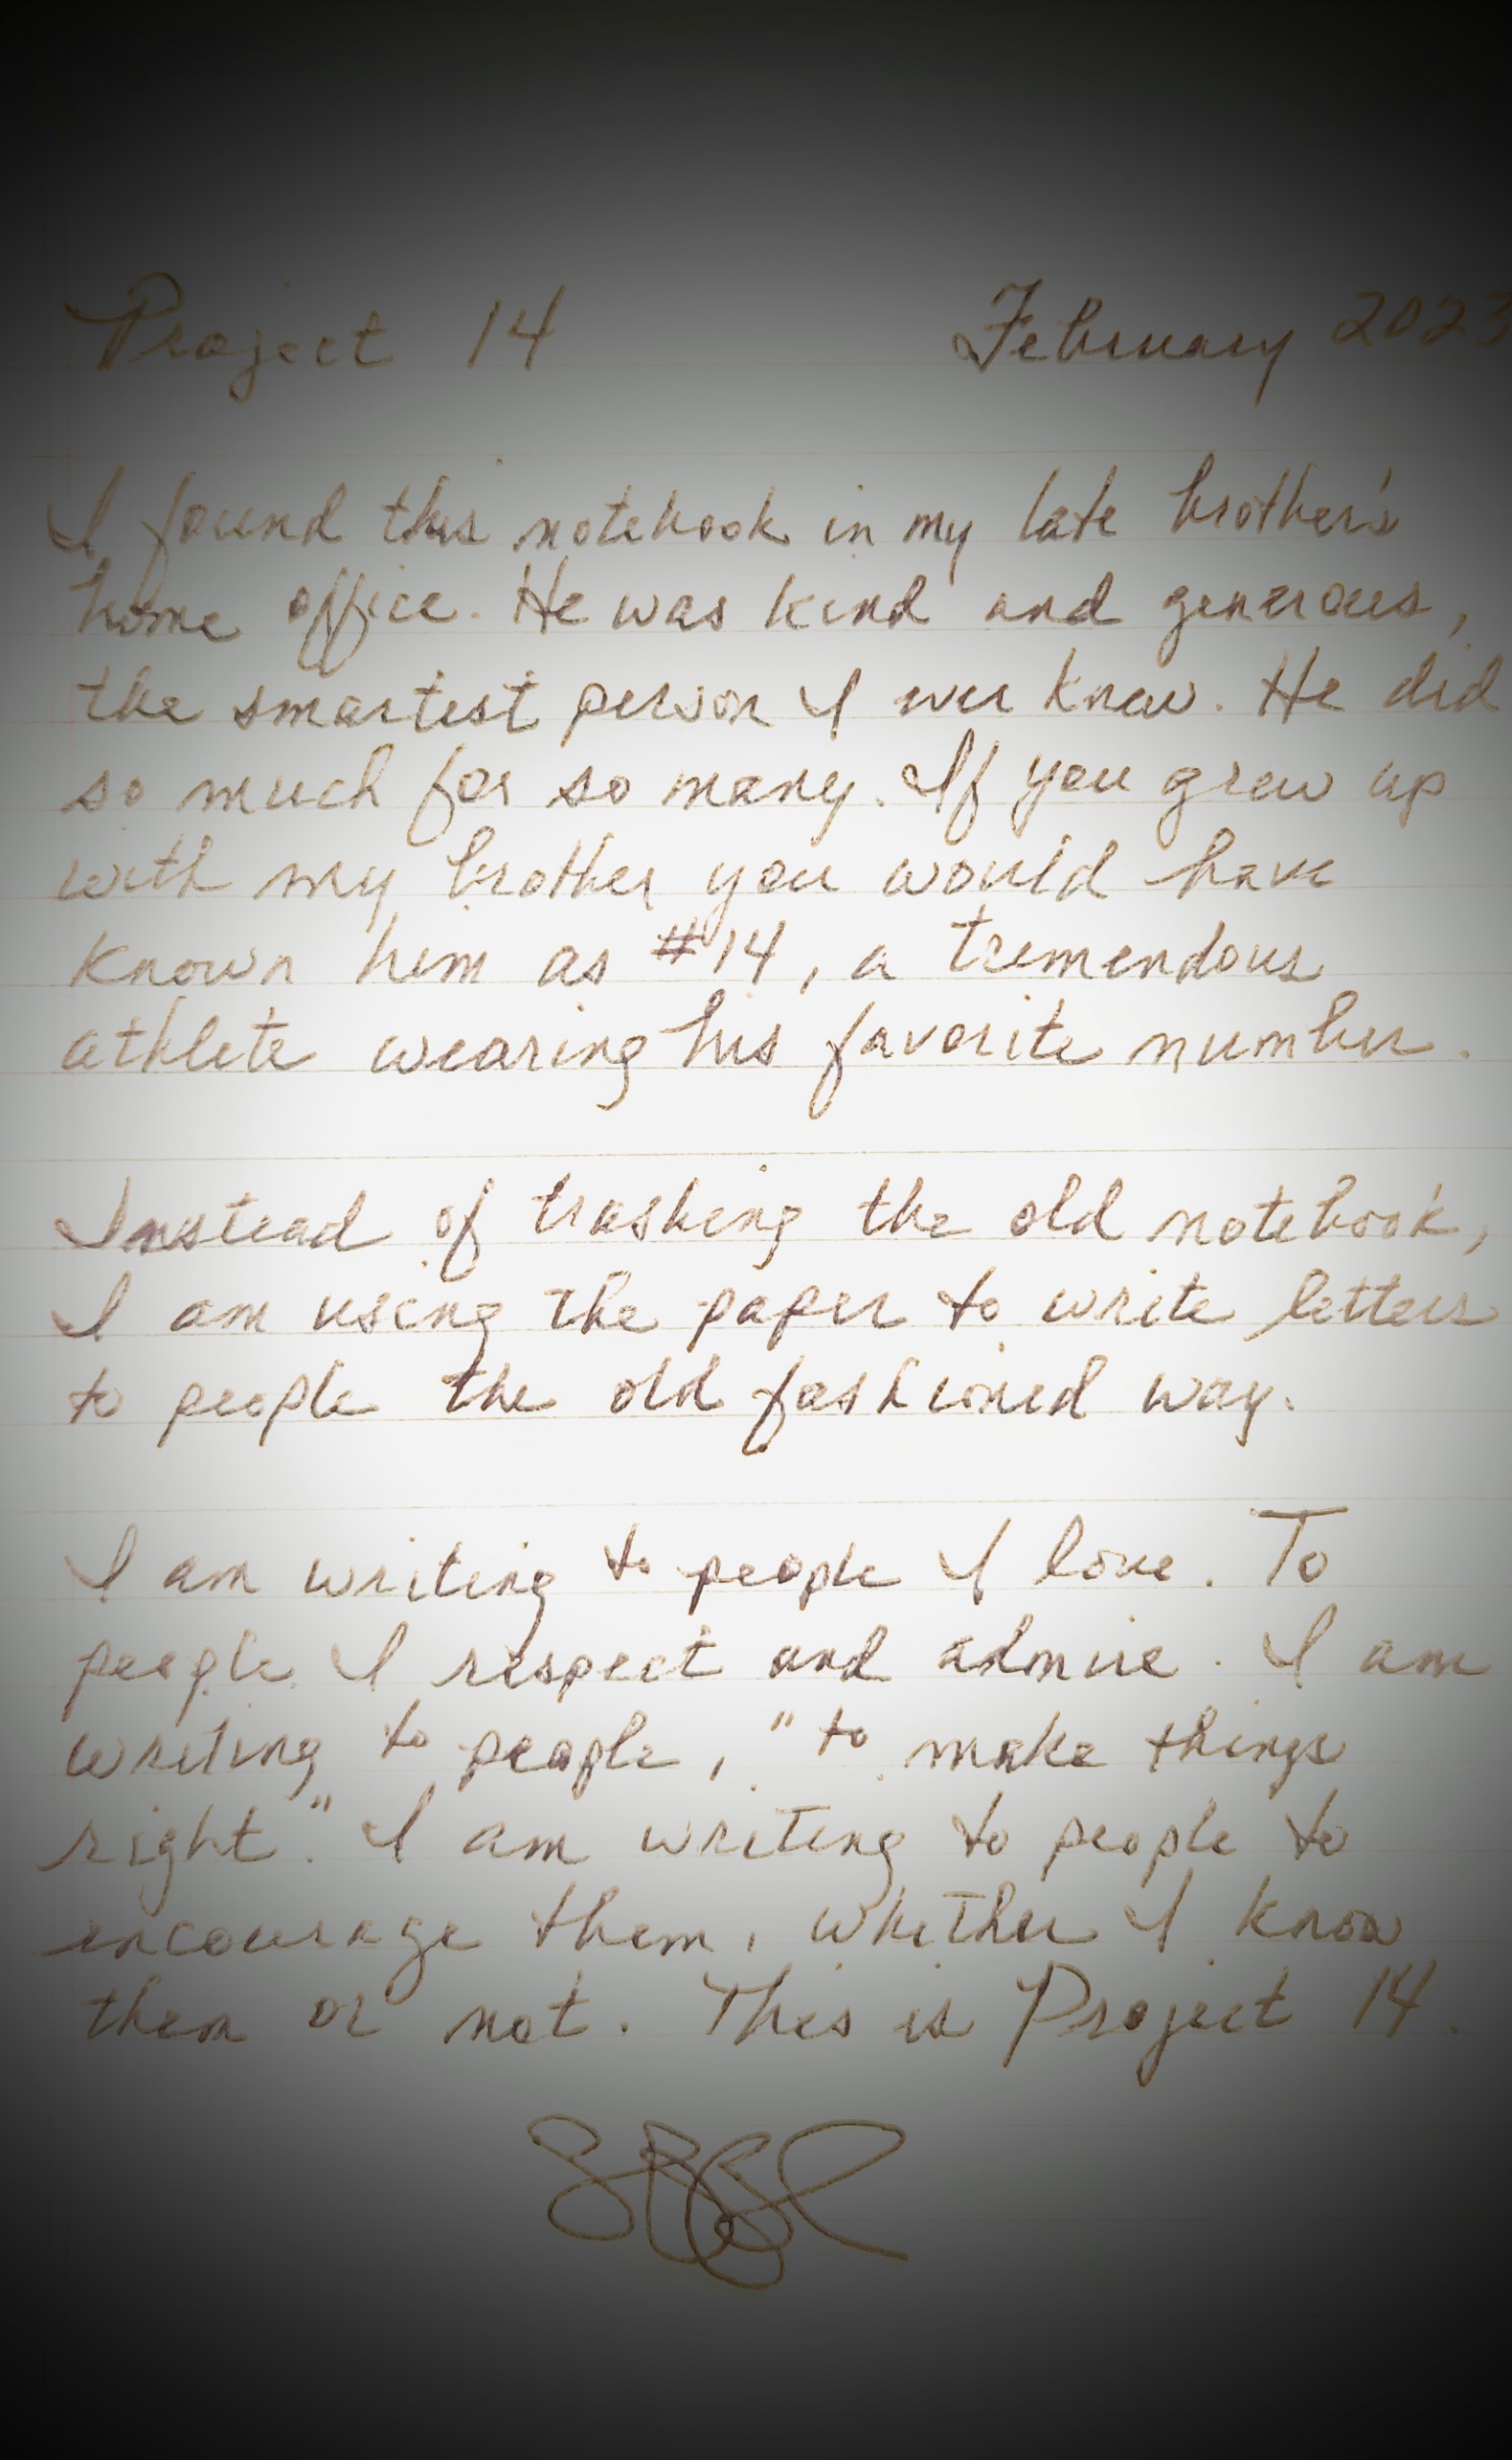 Project 14 February 2023
I found this notebook in my late brother's
home office. He was kind and generous,
the smartest person I ever knew. He did
so much for so many. If you grew up
with my brother you would have
known him as #14, a tremendous
athlete wearing his favorite number.
Instead of trashing the old notebook,
I am using the paper to write letters
to people the old fashioned way.
I am writing to people I love. To
people I respect and admire. I am
writing to people, "to make things
right." I am writing to people to
encourage them, whether I know
them or not. This is Project 14.